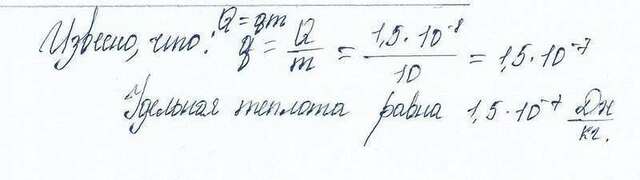 Извесно, что: Q = qm
q = Q/m = 1,5·10⁻⁸/10 = 1,5·10⁻⁷
Удельная теплота равна 1,5·10⁻⁷ Дж/кг.